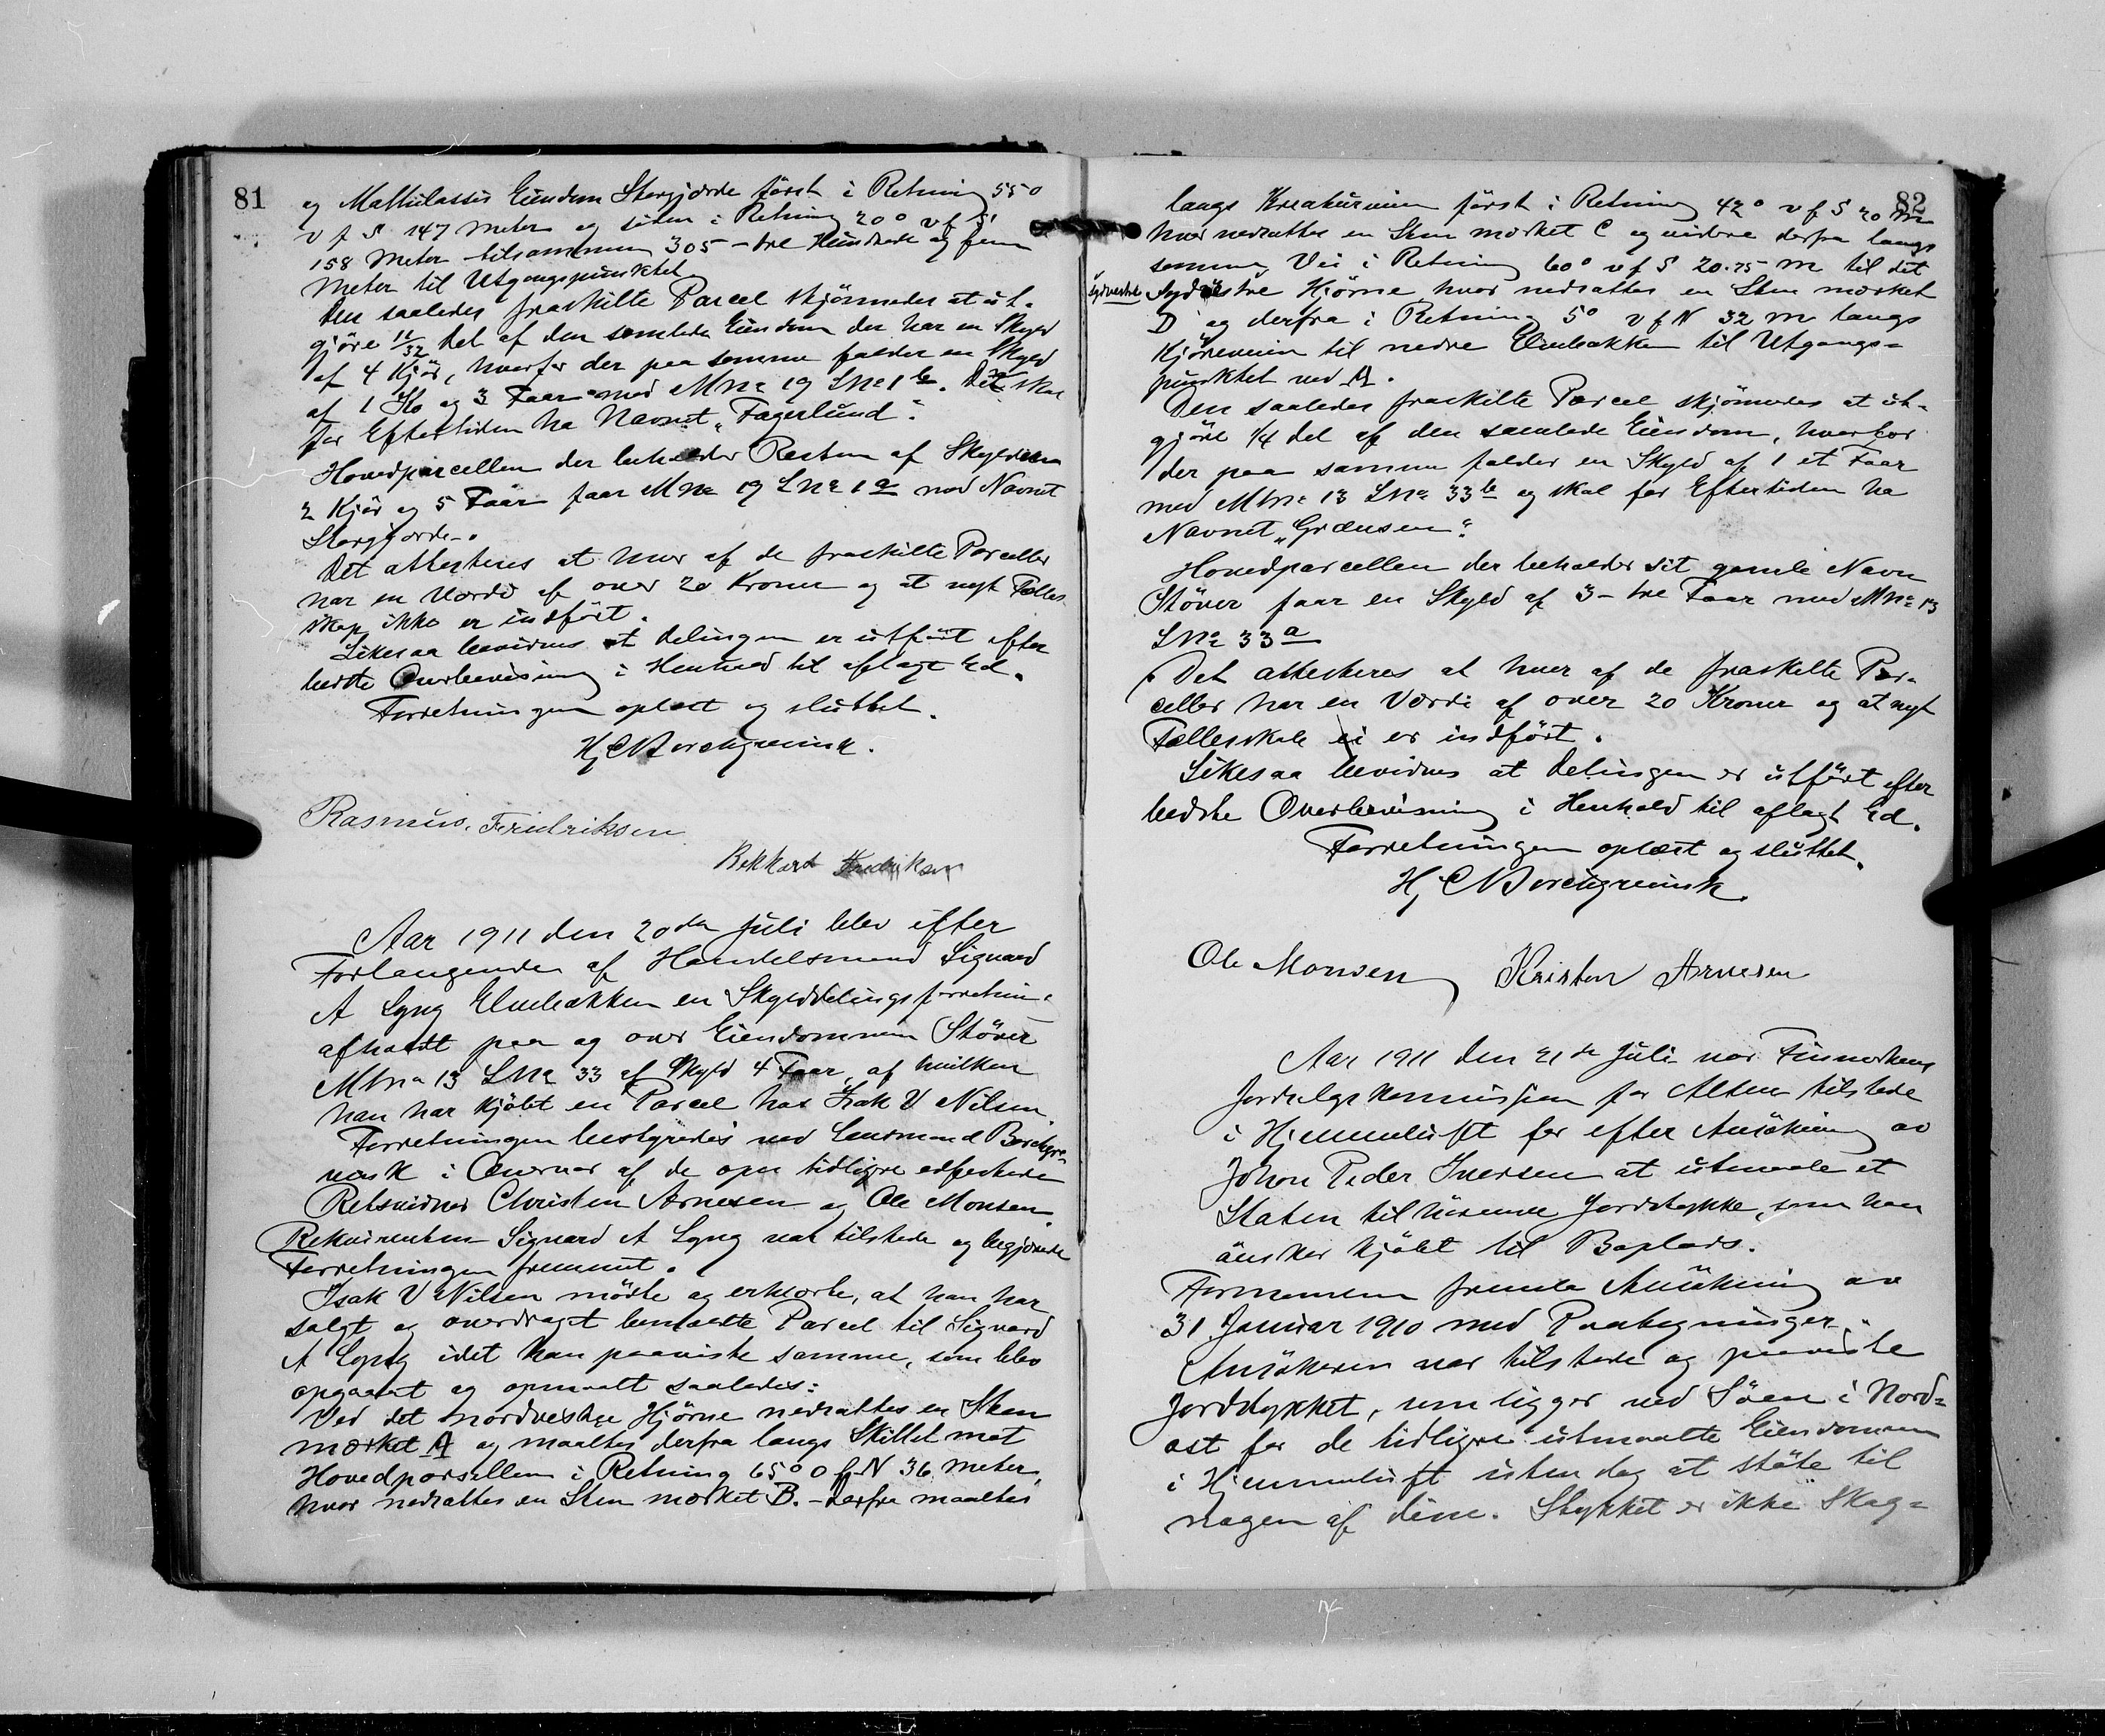 81
og Mathilassis Eiendom Storgjorde först i Retning 55°
v f S 147 Meter og siden i Retning 20° v f S
158 Meter tilsammen 305 – tre Hundrede og fem
Meter til Utgangspunktet.
Den saaledes fraskilte Parcel skjönnedes at ut-
gjöre 11/32 Del af den samlede Eiendom der har en Skyld
af 4 Kjör, hvorfor der paa samme falder en Skyld
af 1 Ko og 3 Faar med M Nr 19 L Nr 1 b. Det skal
for Eftertiden ha Navnet „Fagerlund“.
Hovedparcellen der beholder Resten af Skylden
2 Kjör og 5 Faar faar M Nr 19 L Nr 1 a med Navnet
Storgjorde.
Det attesteres at hver af de fraskilte Parceller
har en Værdi af over 20 Kroner og at nyt Fælles
skap ikke er indfört.
Likesaa bevidnes at Delingen er utfört efter
bedste Overbevisning i Henhold til aflagt Ed.
Forretningen oplæst og sluttet.
Hj C Borchgrevink.
Rasmus. Fredriksen
Bekkard Fredriksen
Aar 1911 den 20de Juli blev efter
Forlangende af Handelsmand Sigvard
A Lyng Elvebakken en Skylddelingsforretnin-
afholdt paa og over Eiendommen Stöver
M Nr 13 L Nr 33 af Skyld 4 Faar, af hvilken
han har kjöbt en Parcel hos Isak V Nilsen.
Forretningen bestyredes ved Lensmand Borchgre-
vink i Overvær af de opn tidligere edfæstede
Retsvidner Christen Arnesen og Ole Monsen.
Rekvirenten Sigvard A Lyng var tilstede og begjærede
Forretningen fremmet.
Isak V Nilsen mödte og erklærte, at han har
solgt og overdraget bemeldte Parcel til Sigvard
A Lyng idet han paaviste samme, som blev
opgaaet og opmaalt saaledes:
Ved det nordvestre Hjörne nedsattes en Sten
mærket A og maaltes derfra langs Skillet mot
Hovedparsellen i Retning 65° O f N 36 Meter,
hvor nedsattes en Sten mærket B. – derfra maaltes
82
langs Kreaturveien först i Retning 42° v f S 20 m
hvor nedsattes en Sten mærket C og videre derfra langs
samme Vei i Retning 60° v f S 20.75 m til det
sydvestre
sydöstre Hjörne hvor nedsattes en Sten mærket
D og derfra i Retning 5° v f N 32 m langs
Kjöreveien til nedre Elvebakken til Utgangs-
punktet ved A.
Den saaledes fraskilte Parcel skjönnedes at ut-
gjöre 1/4 del af den samlede Eiendom, hvorfor
der paa samme falder en Skyld af 1 et Faar
med M Nr 13 L Nr 33 b og skal for Eftertiden ha
Navnet „Grænsen“.
Hovedparcellen der beholder sit gamle Navn
Stöver faar en Skyld af 3 – tre Faar med M Nr 13
L Nr 33 a
Det attesteres at hver af de fraskilte Par-
celler har en Værdi af over 20 Kroner og at nyt
Fællesskab ei er indfört.
Likesaa bevidnes at Delingen er utfört efter
bedste Overbevisning i Henhold til aflagt Ed.
Forretningen oplæst og sluttet.
Hj C Borchgrevink.
Ole Monsen Kristen Arnesen
Aar 1911 den 21de Juli var Finmarkens
Jordsalgskommission for Alten tilstede
i Hjemmeluft for efter Ansökning av
Johan Peder Iversen at utmaale et
Staten tilhörende Jordstykke, som han
önsker kjöbt til Boplads.
Formannen fremla Ansökning av
31 Januar 1910 med Paategninger.
Ansökeren var tilstede og paaviste
Jordstykket, som ligger ved Söen i Nord-
ost for de tidligere utmaalte Eiendomme
i Hjemmeluft uten dog at stöte til
nogen af disse. Stykket er ikke Skog-